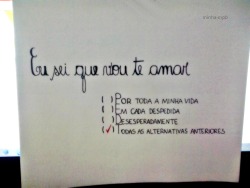 Eu sei que vou te amar
( ) POR TODA A MINHA VIDA
( ) EM CADA DESPEDIDA
( ) DESESPERADAMENTE
(✓) TODAS AS ALTERNATIVAS ANTERIORES